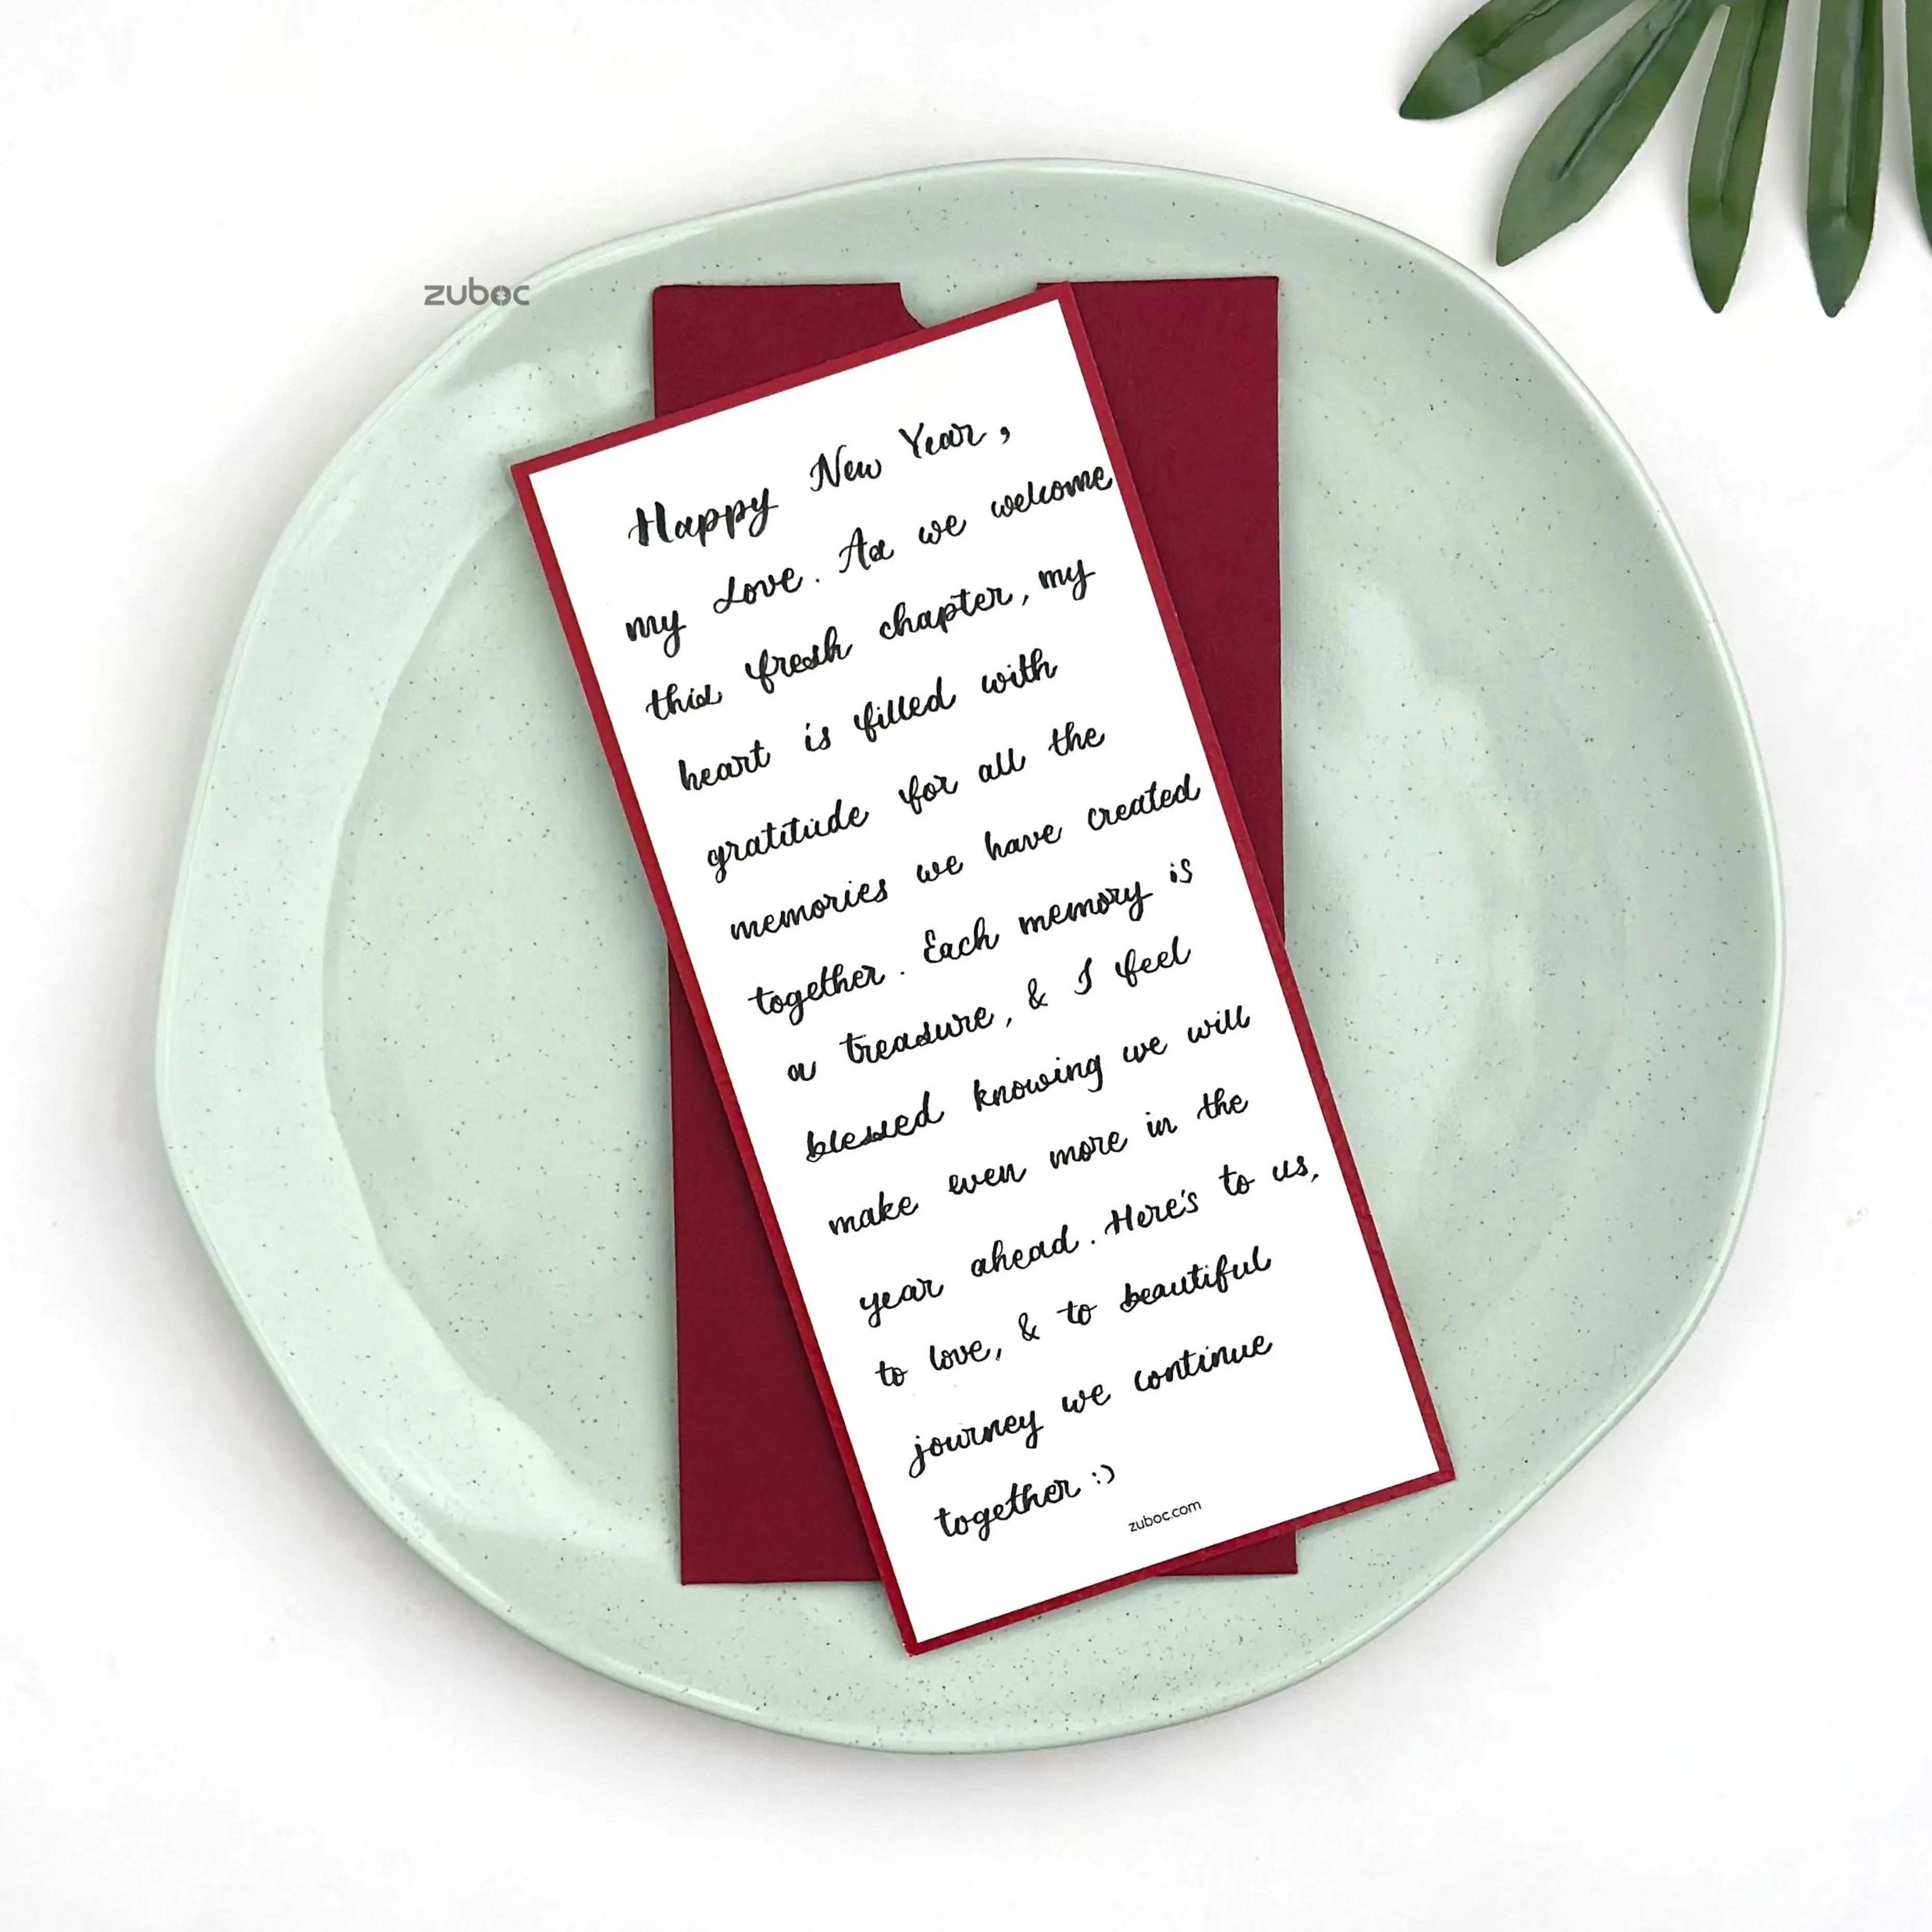 zuboc
Happy New Year,
my Love. As we welcome
this fresh chapter, my
heart is filled with
gratitude for all the
memories we have created
together. Each memory is
a treasure, & I feel
blessed knowing we will
make even more in the
year ahead. Here's to us,
to love, & to beautiful
journey we continue
together :)
zuboc.com